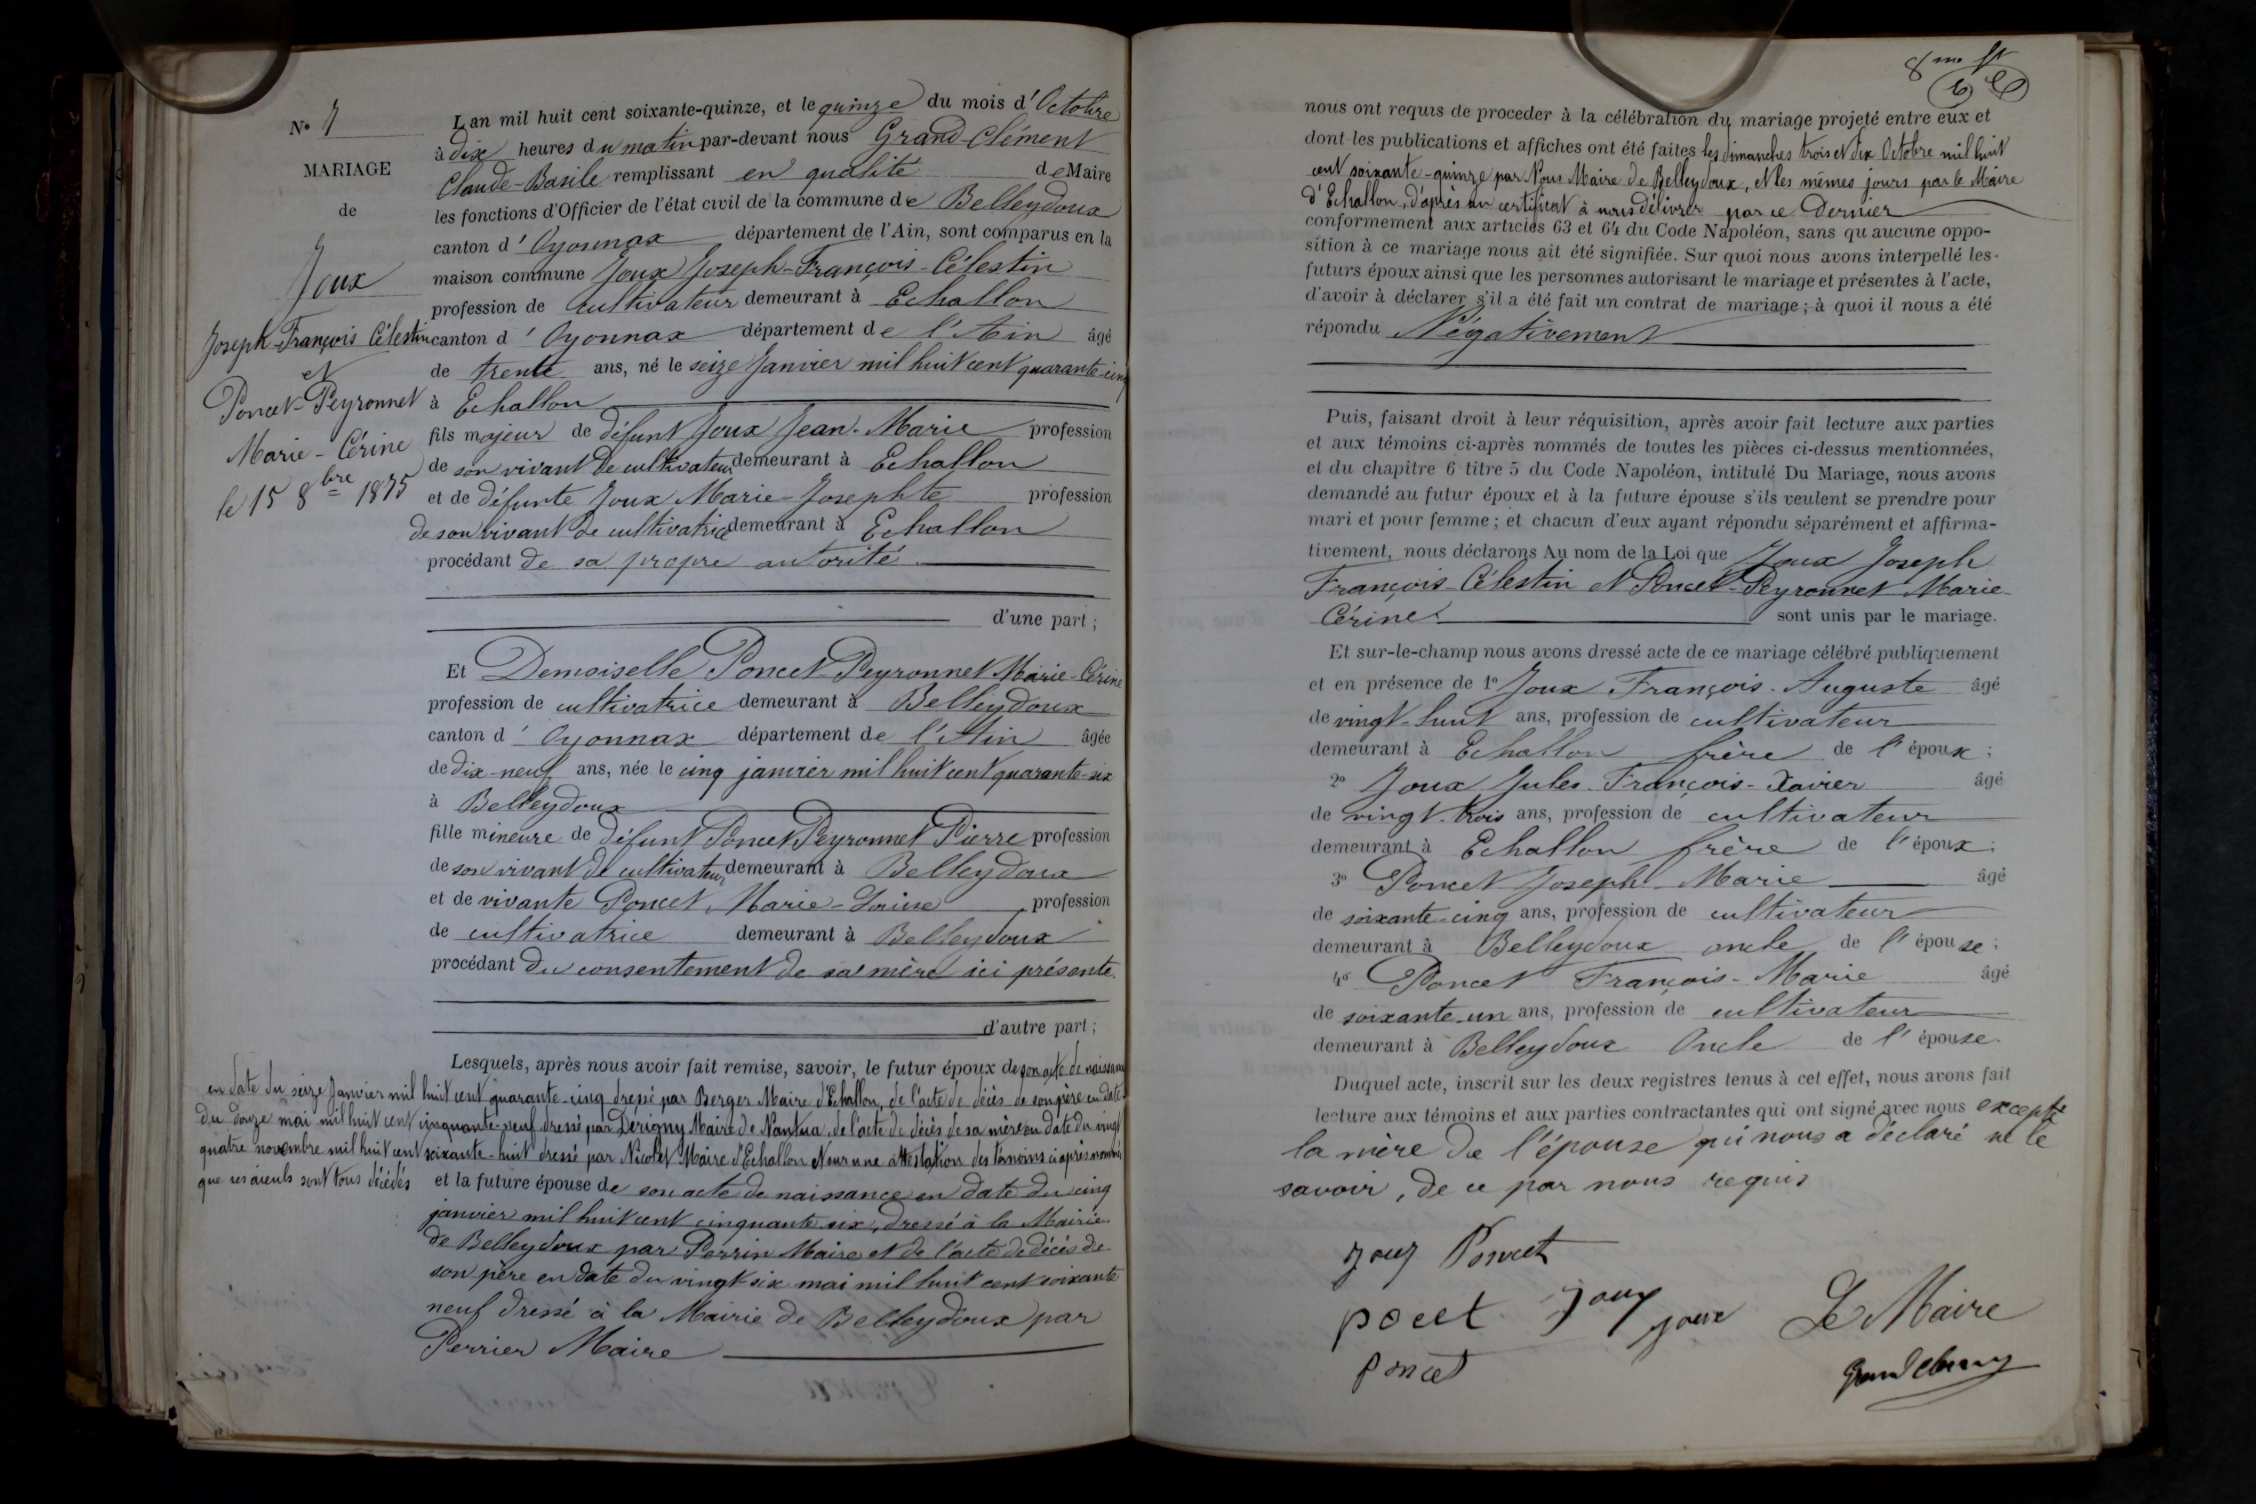 N° 7
MARIAGE
de
Joux
Joseph-François Célestin
et
Poncet-Peyronnet
Marie-Cérine
le 15 8bre 1875
L'an mil huit cent soixante-quinze, et le quinze du mois d'Octobre
à dix heures du matin par-devant nous Grand-Clément
Claude-Basile remplissant en qualité de Maire
les fonctions d'Officier de l'état civil de la commune de Belleydoux
canton d'Oyonnax département de l'Ain, sont comparus en la
maison commune Joux Joseph-François-Célestin
profession de cultivateur demeurant à Echallon
canton d'Oyonnax département de l'Ain âgé
de trente ans, né le seize Janvier mil huit cent quarante-cinq
à Echallon
fils majeur de défunt Joux Jean-Marie profession
de son vivant de cultivateur demeurant à Echallon
et de défunte Joux Marie-Josephte profession
de son vivant de cultivatrice demeurant à Echallon
procédant de sa propre autorité.
d'une part;
Et Demoiselle Poncet-Peyronnet Marie-Cérine
profession de cultivatrice demeurant à Belleydoux
canton d'Oyonnax département de l'Ain âgée
de dix-neuf ans, née le cinq janvier mil huit cent quarante-six
à Belleydoux
fille mineure de défunt Poncet Peyronnet Pierre profession
de son vivant de cultivateur demeurant à Belleydoux
et de vivante Poncet, Marie- profession
de cultivatrice demeurant à Belleydoux
procédant du consentement de sa mère ici présente.
d'autre part;
Lesquels, après nous avoir fait remise, savoir, le futur époux de son acte de naissance
en date du seize Janvier mil huit cent quarante-cinq dressé par Berger Maire d'Echallon, de l'acte de décès de son père en date
du douze mai mil huit cent cinquante-neuf dressé par Dérigny Maire de Nantua, de l'acte de décès de sa mère en date du vingt
quatre novembre mil huit cent soixante-huit dressé par Nicolet Maire d'Echallon et sur une attestation des témoins ci après nommés
que ses aïeuls sont tous décédés
et la future épouse de son acte de naissance en date du cinq
janvier mil huit cent cinquante six, dressé à la Mairie
de Belleydoux par Perrin Maire et de l'acte de décès de
son père en date du vingt six mai mil huit cent soixante
neuf dressé à la Mairie de Belleydoux par
Perrier Maire
8me ft
nous ont requis de procéder à la célébration du mariage projeté entre eux et
dont les publications et affiches ont été faites les dimanches trois et dix Octobre mil huit
cent soixante-quinze par Nous Maire de Belleydoux, et les mêmes jours par le Maire
d'Echallon, d'après un certificat à nous délivrer par ce Dernier
conformément aux articles 63 et 64 du Code Napoléon, sans qu'aucune oppo-
sition à ce mariage nous ait été signifiée. Sur quoi nous avons interpellé les
futurs époux ainsi que les personnes autorisant le mariage et présentes à l'acte,
d'avoir à déclarer s'il a été fait un contrat de mariage; à quoi il nous a été
répondu Négativement
Puis, faisant droit à leur réquisition, après avoir fait lecture aux parties
et aux témoins ci-après nommés de toutes les pièces ci-dessus mentionnées,
et du chapitre 6 titre 5 du Code Napoléon, intitulé Du Mariage, nous avons
demandé au futur époux et à la future épouse s'ils veulent se prendre pour
mari et pour femme; et chacun d'eux ayant répondu séparément et affirma-
tivement, nous déclarons Au nom de la Loi que Joux Joseph
François-Célestin et Poncet-Peyronnet Marie-
Cérine sont unis par le mariage.
Et sur-le-champ nous avons dressé acte de ce mariage célébré publiquement
et en présence de 1° Joux François-Auguste âgé
de vingt-huit ans, profession de cultivateur
demeurant à Echallon frère de l'époux;
2° Joux Jules-François-Xavier âgé
de vingt-trois ans, profession de cultivateur
demeurant à Echallon frère de l'époux;
3° Poncet Joseph-Marie âgé
de soixante-cinq ans, profession de cultivateur
demeurant à Belleydoux oncle de l'épouse;
4° Poncet François-Marie âgé
de soixante-un ans, profession de cultivateur
demeurant à Belleydoux Oncle de l'épouse.
Duquel acte, inscrit sur les deux registres tenus à cet effet, nous avons fait
lecture aux témoins et aux parties contractantes qui ont signé avec nous excepté
la mère de l'épouse qui nous a déclaré ne le
savoir, de ce par nous requis
Joux Poncet
pocet Joux Joux Le Maire
poncet Grandclément